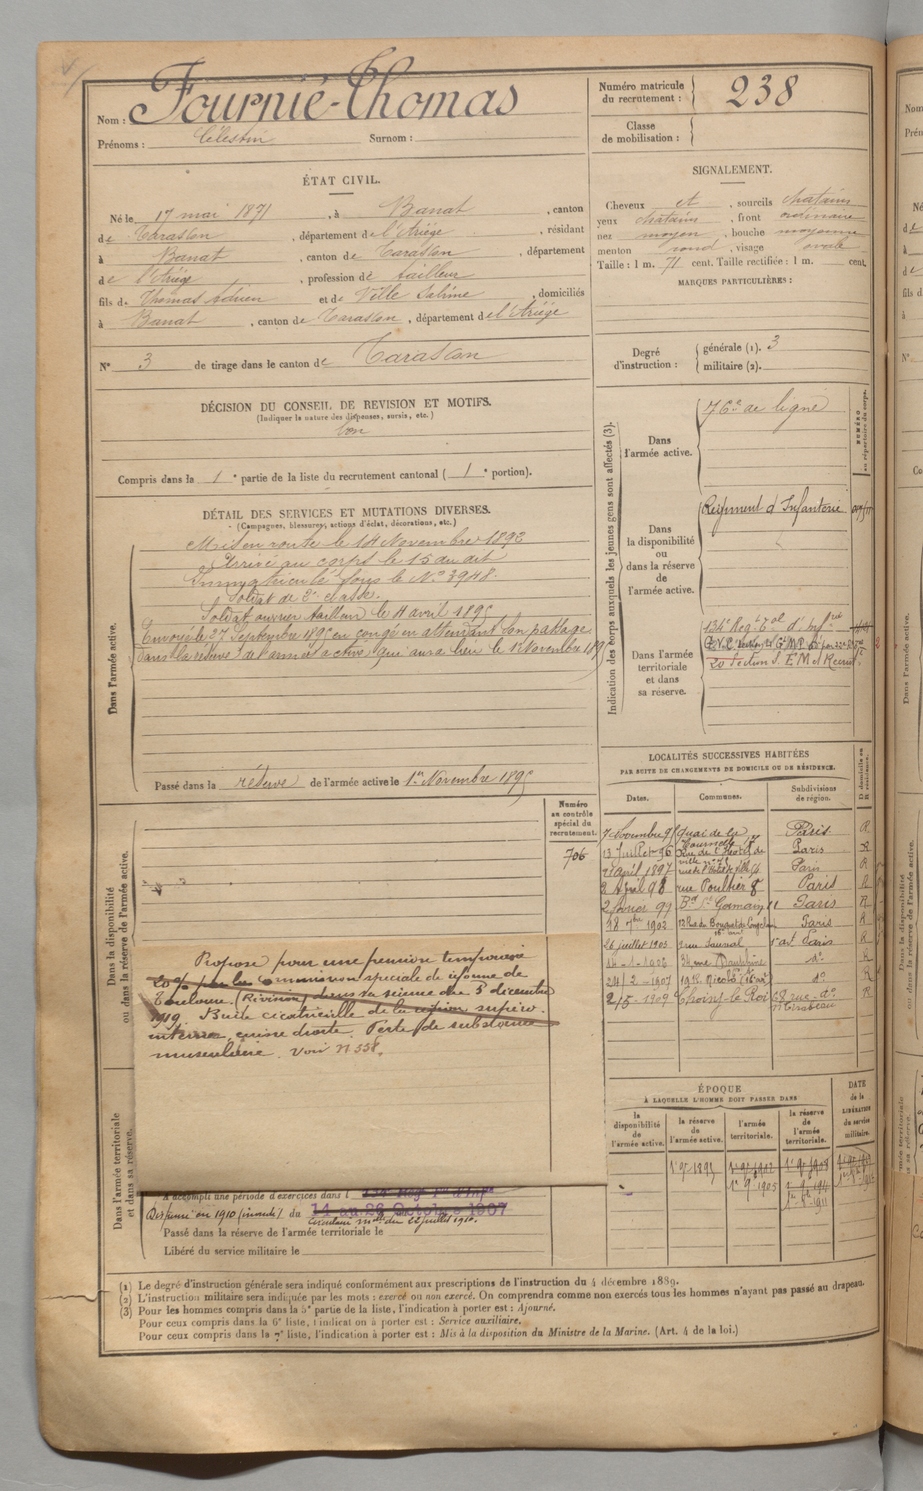 Nom : Fournié-Thomas
Prénoms : Célestin Surnom :
Numéro matricule du recrutement : 238
Classe de mobilisation :
ÉTAT CIVIL.
Né le 17 mai 1871, à Banat, canton
de Tarascon, département de l'Ariége, résidant
à Banat, canton de Tarascon, département
de l'Ariége, profession de tailleur
fils de Thomas et de Ville Sabine, domiciliés
à Banat, canton de Tarascon, département de l'Ariége
N° 3 de tirage dans le canton de Tarascon
DÉCISION DU CONSEIL DE REVISION ET MOTIFS.
(Indiquer la nature des dispenses, sursis, etc.)
bon
Compris dans la 1e partie de la liste du recrutement cantonal (1e portion).
SIGNALEMENT.
Cheveux et, sourcils chatains
yeux chatains, front ordinaire
nez moyen, bouche moyenne
menton rond, visage ovale
Taille : 1 m. 71 cent. Taille rectifiée : 1 m. cent.
MARQUES PARTICULIÈRES :
Degré d'instruction :
générale (1). 3
militaire (2).
DÉTAIL DES SERVICES ET MUTATIONS DIVERSES.
(Campagnes, blessures, actions d'éclat, décorations, etc.)
Dans l'armée active.
Mis en route le 14 Novembre 1892
Arrivé au corps le 15 du dit
Immatriculé sous le N° 3948.
Soldat de 2e classe.
Soldat ouvrier tailleur le 4 avril 1895
Envoyé le 27 Septembre 1895 en congé en attendant son passage
dans la réserve de l'armée active qui aura lieu le 1 Novembre 1895
Passé dans la réserve de l'armée active le 1er Novembre 1895
Indication des corps auxquels les jeunes gens sont affectés (3).
NUMÉRO au répertoire du corps.
Dans l'armée active.
76e de ligne
Dans la disponibilité ou dans la réserve de l'armée active.
Régiment d'Infanterie
Dans l'armée territoriale et dans sa réserve.
134e Reg t Tal d'Infrie
20 Section S. E M et Recrut
LOCALITÉS SUCCESSIVES HABITÉES
PAR SUITE DE CHANGEMENTS DE DOMICILE OU DE RÉSIDENCE.
Dates. Communes. Subdivisions de région. D domicile ou R résidence.
7 Novembre 95 Quai de la Tournelle Paris R
13 Juillet 96 Paris R
21 Avril 1897 Paris R
2 Avril 98 rue Poultier 8 Paris R
2 février 99 Bd St Germain 11 Paris R
18 7bre 1902 Paris R
26 juillet 1903 Paris R
Dauphine do R
24/2-1907 19 R. Nicolo (16 arr) do R
2/5-1909 Choisy-le-Roi 68 rue Mirabeau do R
Numéro au contrôle spécial du recrutement.
706
Dans la disponibilité ou dans la réserve de l'armée active.
Proposé pour une pension temporaire
20% par la Commission spéciale de réforme de
Toulouse (Révision) dans sa séance du 3 décembre
1919. Bride cicatricielle de la région supéro
interne, cuisse droite. Perte de substance
musculaire. Voir n 558.
Dans l'armée territoriale et dans sa réserve.
A accompli une période d'exercices dans l 134e Reg t Tal d'Infie
Dispensé en 1910 du 14 au 28 Octobre 1907
Circulaire mlle du 22 juillet 1910.
Passé dans la réserve de l'armée territoriale le
Libéré du service militaire le
ÉPOQUE
À LAQUELLE L'HOMME DOIT PASSER DANS
la disponibilité de l'armée active.
la réserve de l'armée active.
l'armée territoriale.
la réserve de l'armée territoriale.
DATE de la LIBÉRATION du service militaire.
1 9bre 1895
(1) Le degré d'instruction générale sera indiqué conformément aux prescriptions de l'instruction du 4 décembre 1889.
(2) L'instruction militaire sera indiquée par les mots : exercé ou non exercé. On comprendra comme non exercés tous les hommes n'ayant pas passé au drapeau.
(3) Pour les hommes compris dans la 5e partie de la liste, l'indication à porter est : Ajourné.
Pour ceux compris dans la 6e liste, l'indication à porter est : Service auxiliaire.
Pour ceux compris dans la 7e liste, l'indication à porter est : Mis à la disposition du Ministre de la Marine. (Art. 4 de la loi.)